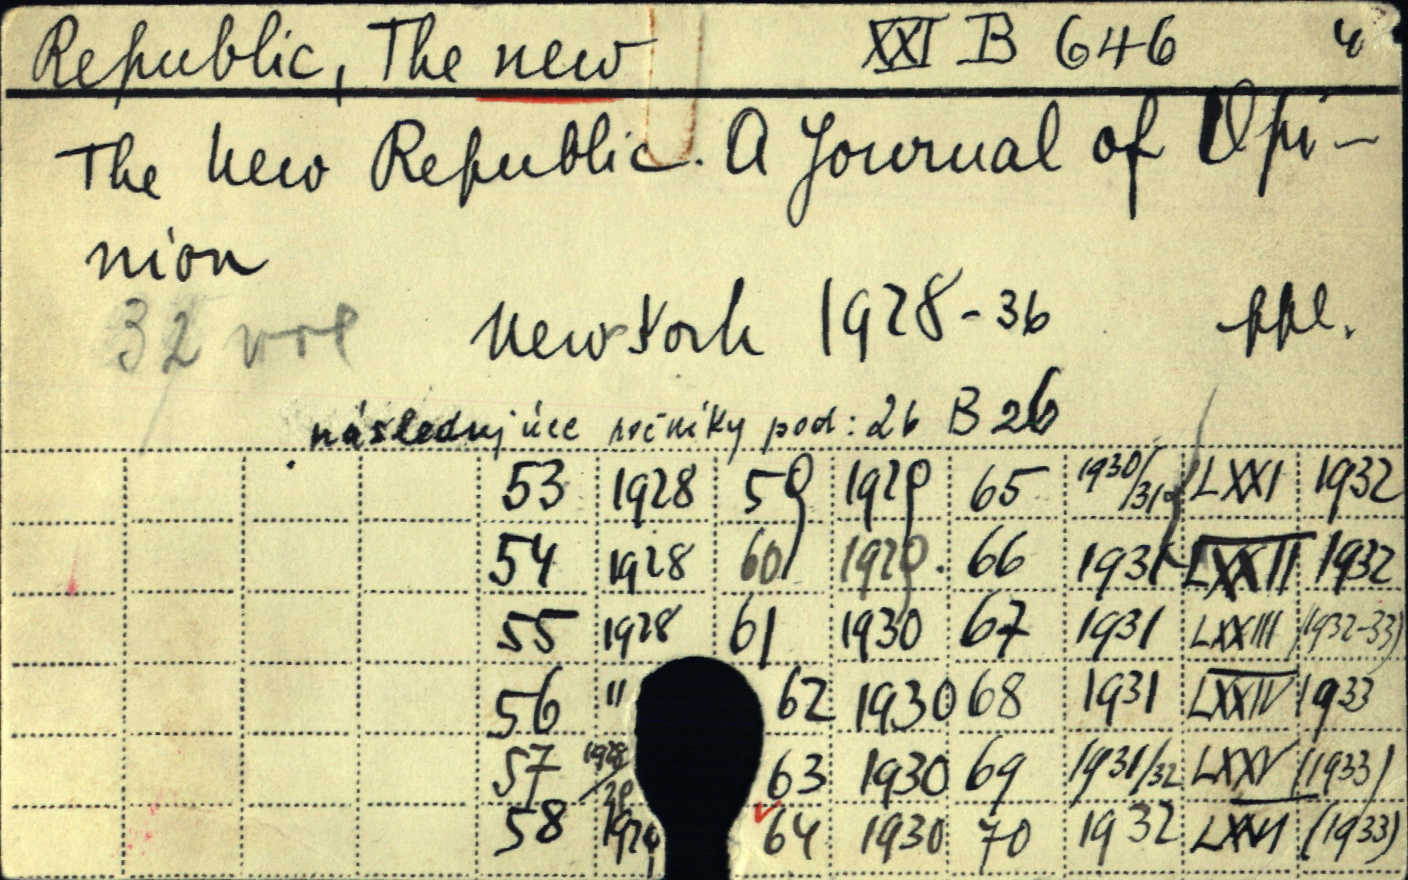 Republic, The new XXI B 646 4
The New Republic. A Journal of Opi-
nion
32 vol New York 1928-36 ppl.
následujúce ročníky pod: 26 B 26
53 1928 59 1929 65 1930/31 LXXI 1932
54 1928 60 1929. 66 1931 LXXII 1932
55 1928 61 1930 67 1931 LXXIII (1932-33)
56 " 62 1930 68 1931 LXXIV 1933
57 1928/29 63 1930 69 1931/32 LXXV (1933)
58 1929 64 1930 70 1932 LXXVI (1933)